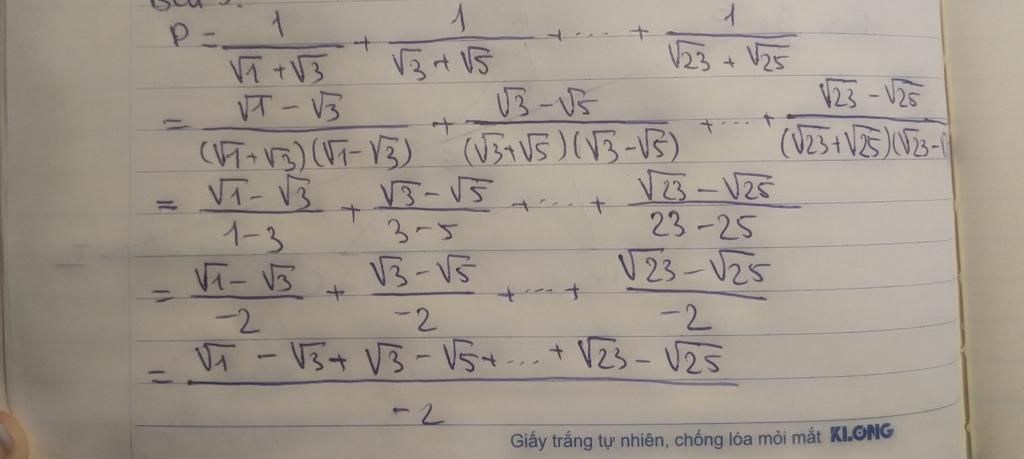 P = 1/(√1 + √3) + 1/(√3 + √5) + ... + 1/(√23 + √25)
= (√1 - √3)/((√1+√3)(√1-√3)) + (√3 - √5)/((√3+√5)(√3-√5)) + ... + (√23 - √25)/((√23+√25)(√23-
= (√1 - √3)/(1-3) + (√3 - √5)/(3-5) + ... + (√23 - √25)/(23-25)
= (√1 - √3)/(-2) + (√3 - √5)/(-2) + ... + (√23 - √25)/(-2)
= (√1 - √3 + √3 - √5 + ... + √23 - √25)/(-2)
Giấy trắng tự nhiên, chống lóa mỏi mắt KLONG